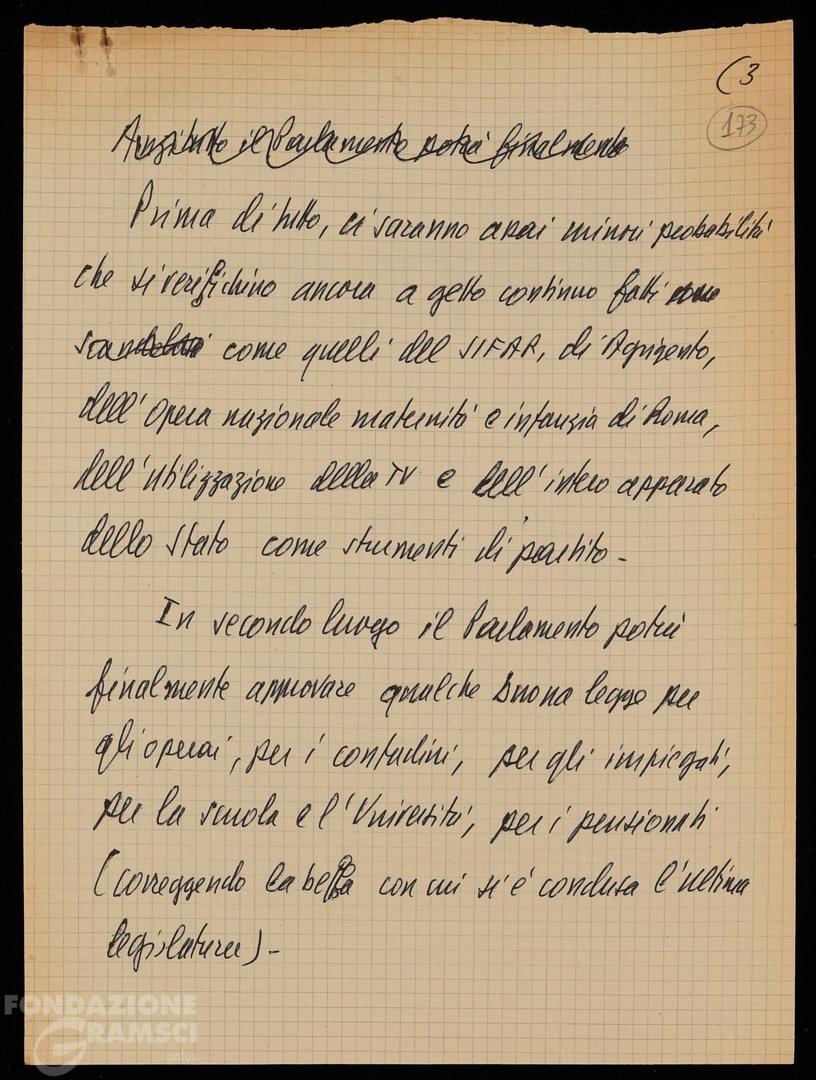 (3
173
Anzitutto il Parlamento potrà finalmente
Prima di tutto, ci saranno assai minori probabilità
che si verifichino ancora a getto continuo fatti come
scandalosi come quelli del SIFAR, di Agrigento,
dell'Opera nazionale maternità e infanzia di Roma,
dell'utilizzazione della TV e dell'intero apparato
dello Stato come strumenti di partito -
In secondo luogo il Parlamento potrà
finalmente approvare qualche buona legge per
gli operai, per i contadini, per gli impiegati,
per la scuola e l'Università, per i pensionati
(correggendo la beffa con cui si è conclusa l'ultima
legislatura) -
FONDAZIONE
GRAMSCI
onlus